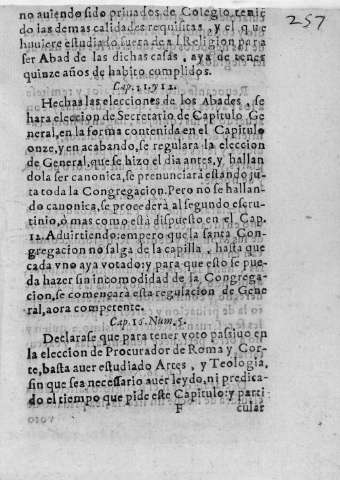 257
no auiendo sido priuados de Colegio, tenié
do las demas calidades requisitas, y el que
huuiere estudiado fuera de la Religion para
ser Abad de las dichas casas, aya de tener
quinze años de habito cumplidos.
Cap. 11. y 12.
Hechas las elecciones de los Abades, se
hara eleccion de Secretario de Capitulo Ge
neral, en la forma contenida en el Capitulo
onze, y en acabando, se regulara la eleccion
de General, que se hizo el dia antes, y hallan
dola ser canonica, se pronunciara estando jú
ta toda la Congregacion. Pero no se hallan-
do canonica, se procederà al segundo escru-
tinio, ò mas como està dispuesto en el Cap.
12. Aduirtiendo: empero que la santa Con-
gregacion no salga de la capilla, hasta que
cada vno aya votado: y para que esto se pue
da hazer sin incomodidad de la Congrega-
cion, se començarà esta regulacion de Gene
ral, a ora competente.
Cap. 16. Num. 5.
Declarase que para tener voto passiuo en
la eleccion de Procurador de Roma y Cor-
te, basta auer estudiado Artes, y Teologia,
sin que sea necessario auer leydo, ni predica-
do el tiempo que pide este Capitulo: y parti
F cular